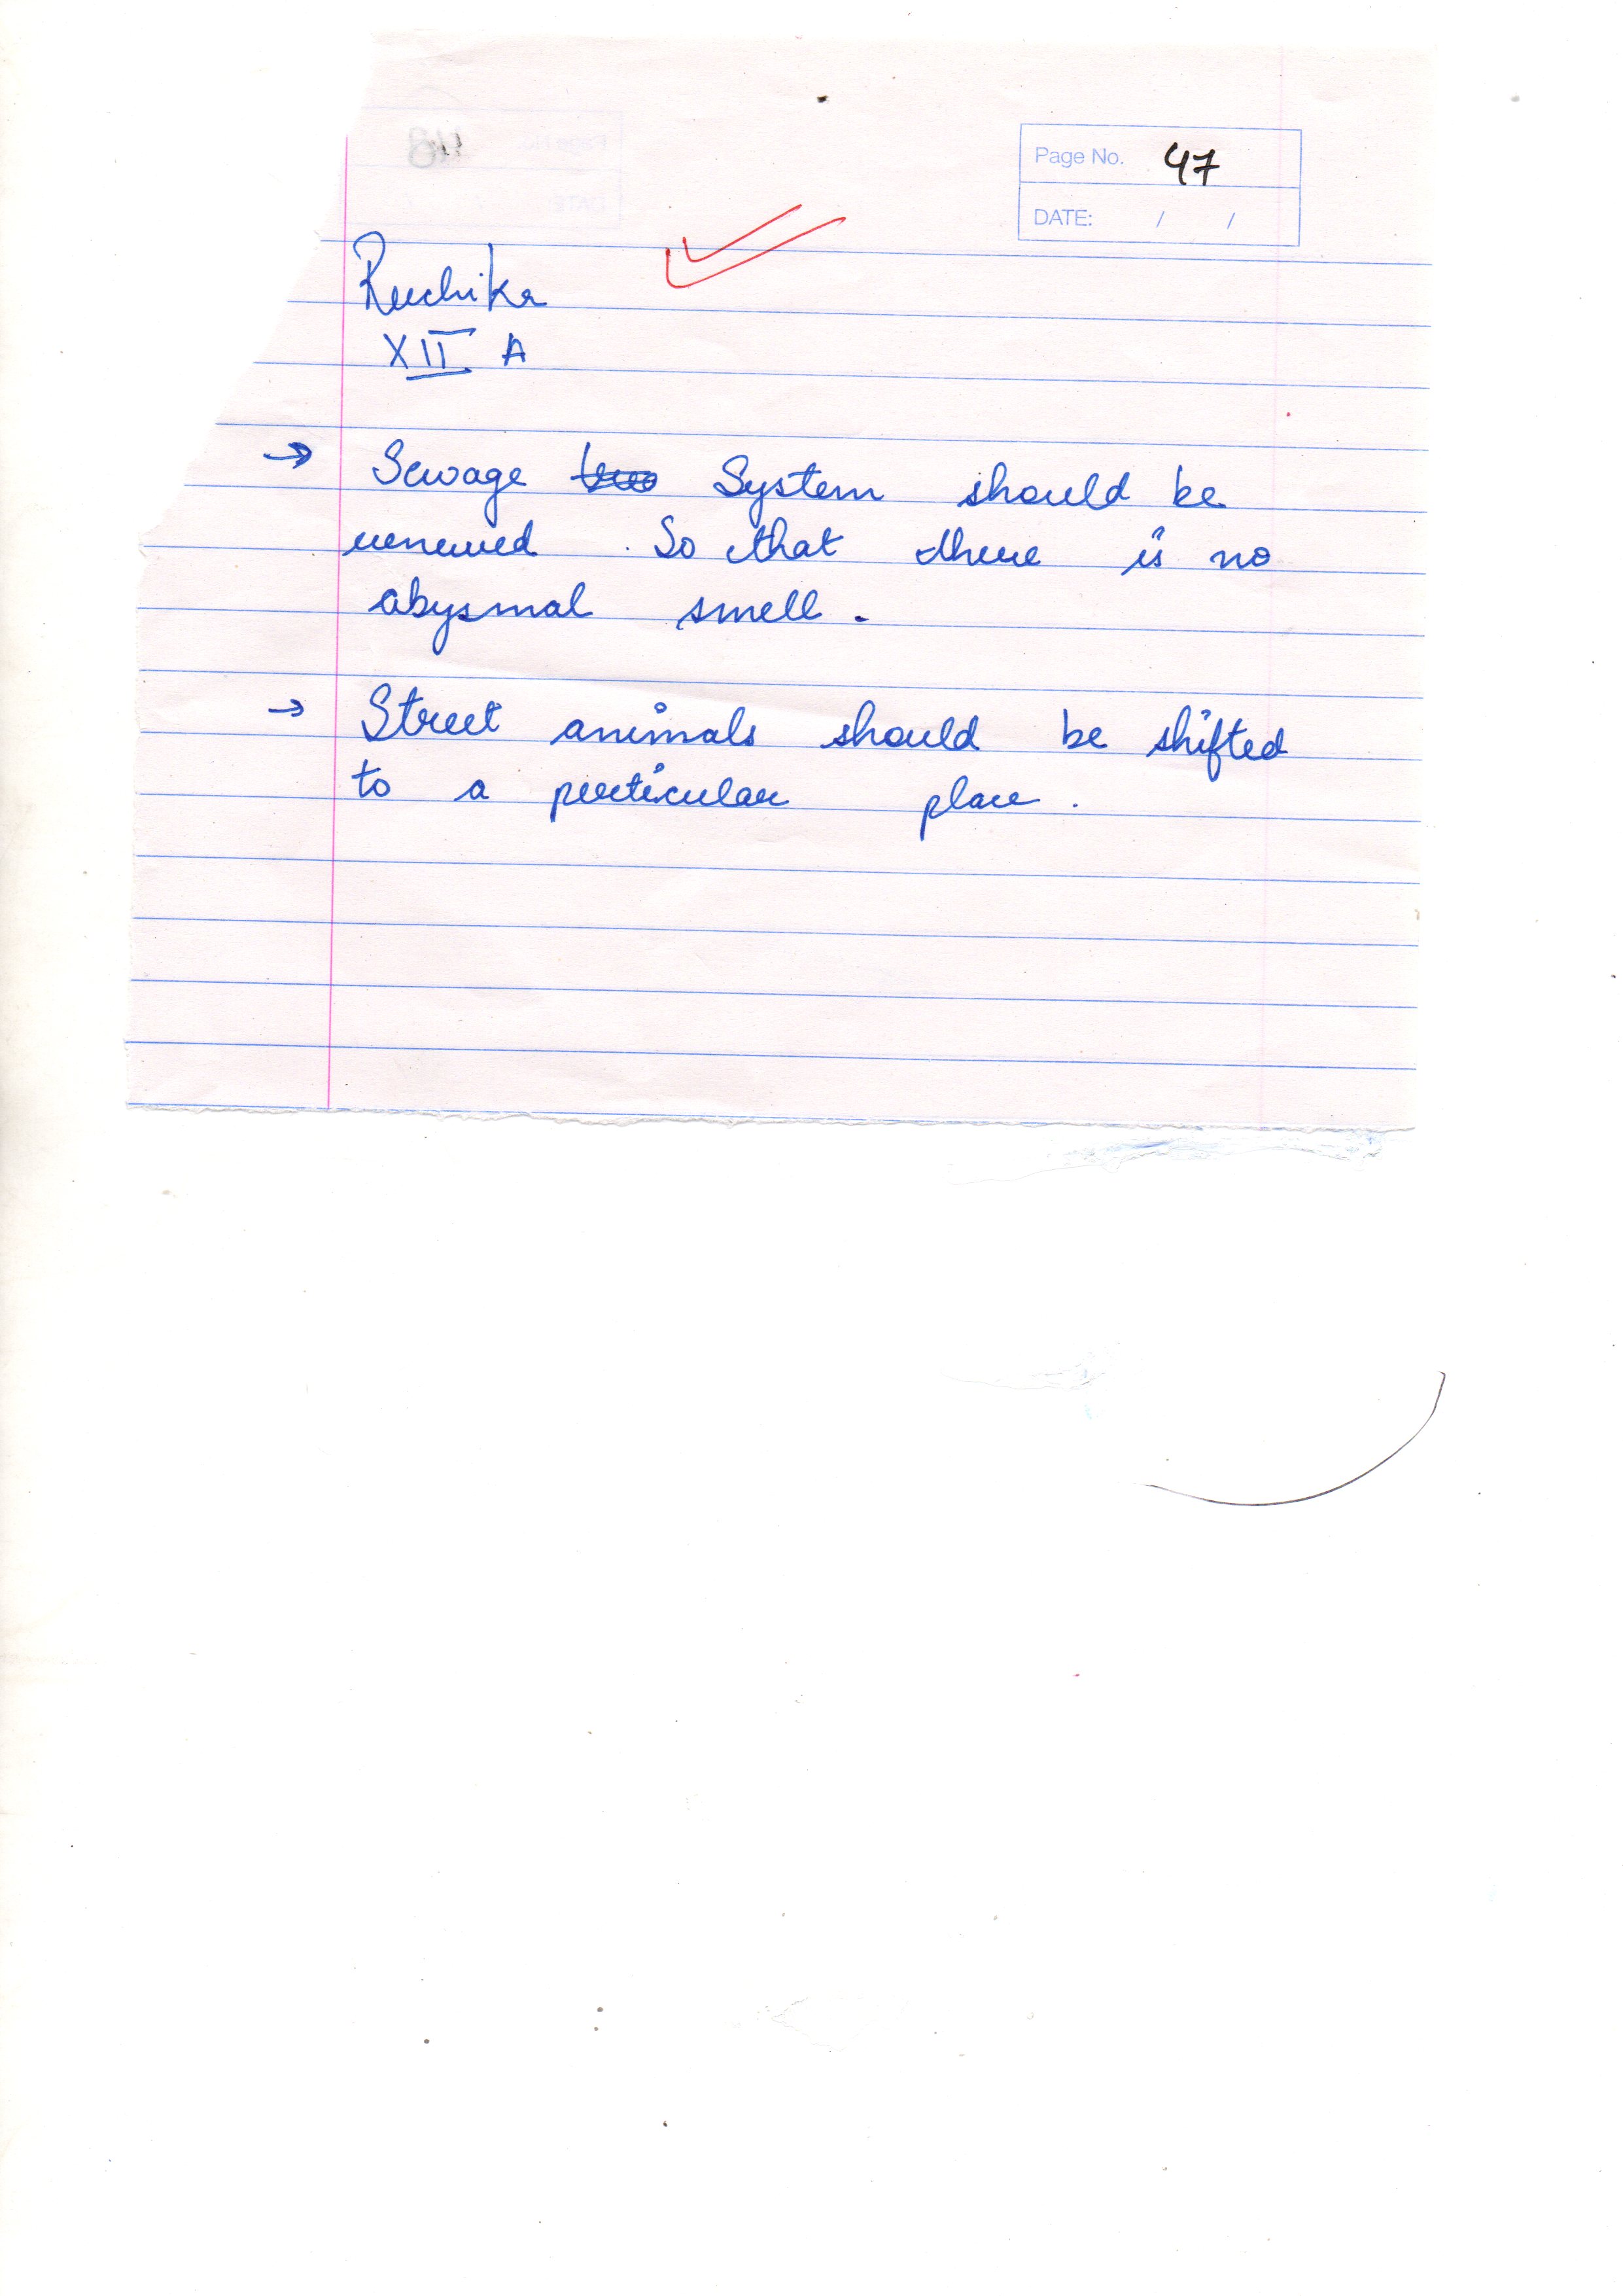 Page No. 47
DATE: / /
Ruchika
XII A
→ Sewage System should be
renewed . So that there is no
abysmal smell .
→ Street animals should be shifted
to a perticular place .